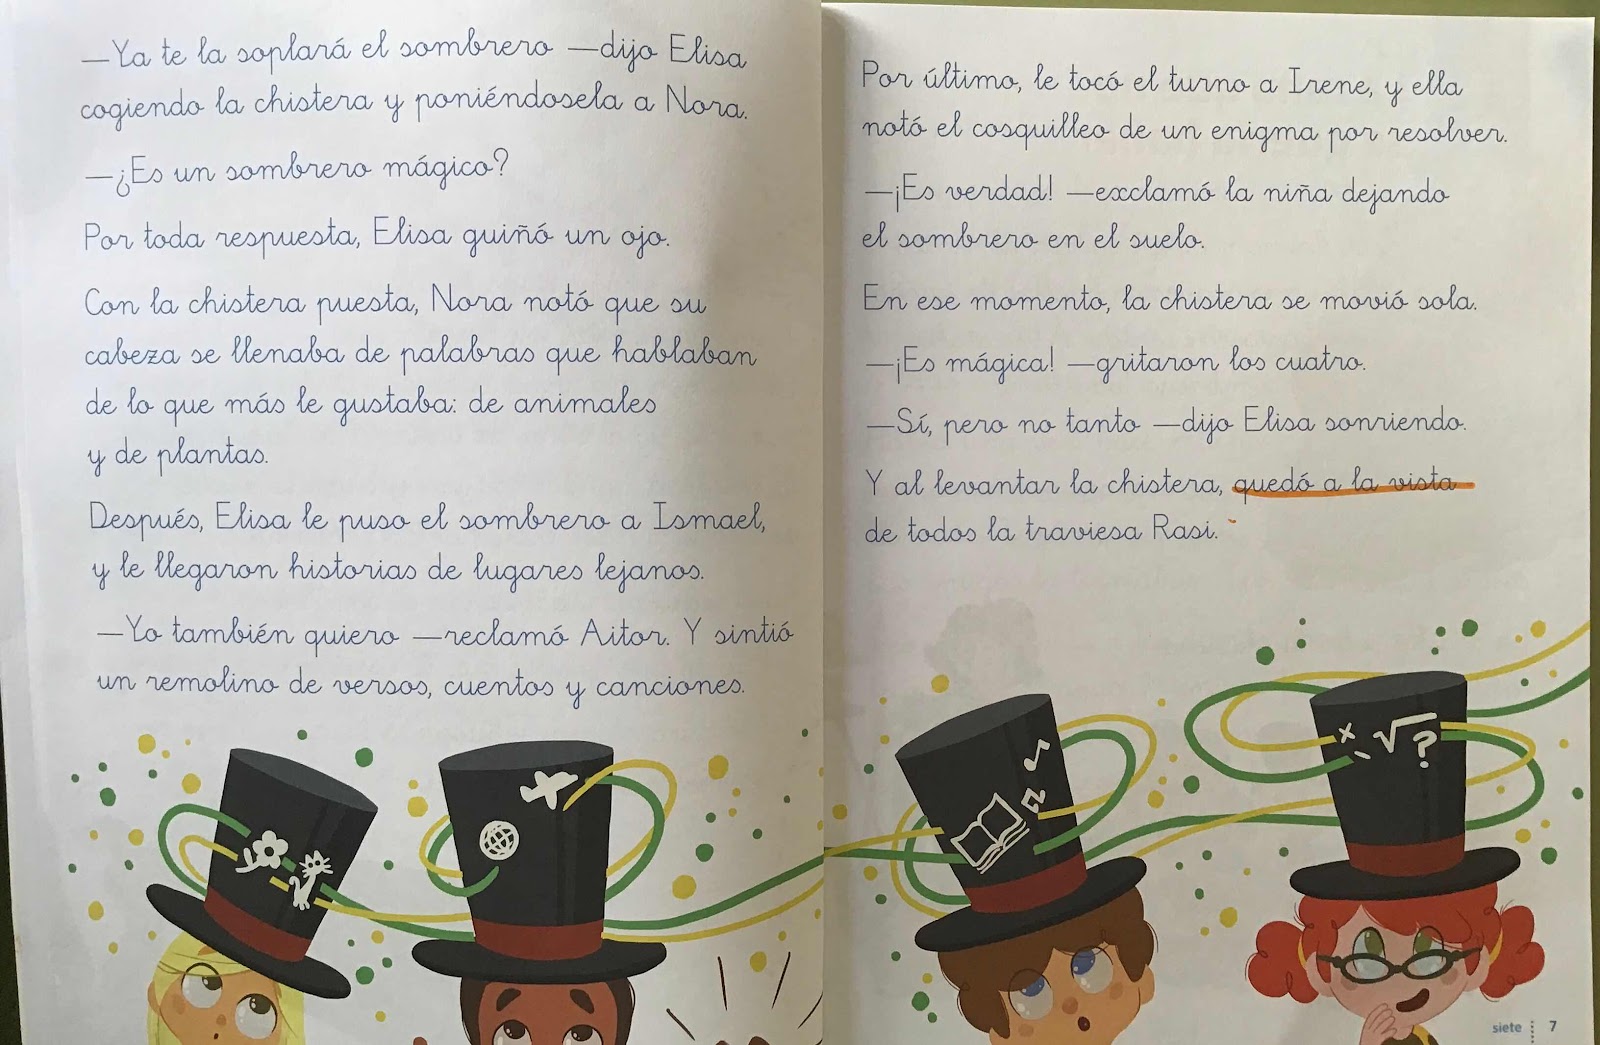 —Ya te la soplará el sombrero —dijo Elisa
cogiendo la chistera y poniéndosela a Nora.
—¿Es un sombrero mágico?
Por toda respuesta, Elisa guiñó un ojo.
Con la chistera puesta, Nora notó que su
cabeza se llenaba de palabras que hablaban
de lo que más le gustaba: de animales
y de plantas.
Después, Elisa le puso el sombrero a Ismael,
y le llegaron historias de lugares lejanos.
—Yo también quiero —reclamó Aitor. Y sintió
un remolino de versos, cuentos y canciones.
Por último, le tocó el turno a Irene, y ella
notó el cosquilleo de un enigma por resolver.
—¡Es verdad! —exclamó la niña dejando
el sombrero en el suelo.
En ese momento, la chistera se movió sola.
—¡Es mágica! —gritaron los cuatro.
—Sí, pero no tanto —dijo Elisa sonriendo.
Y al levantar la chistera, quedó a la vista
de todos la traviesa Rasi.
x √ ?
siete 7